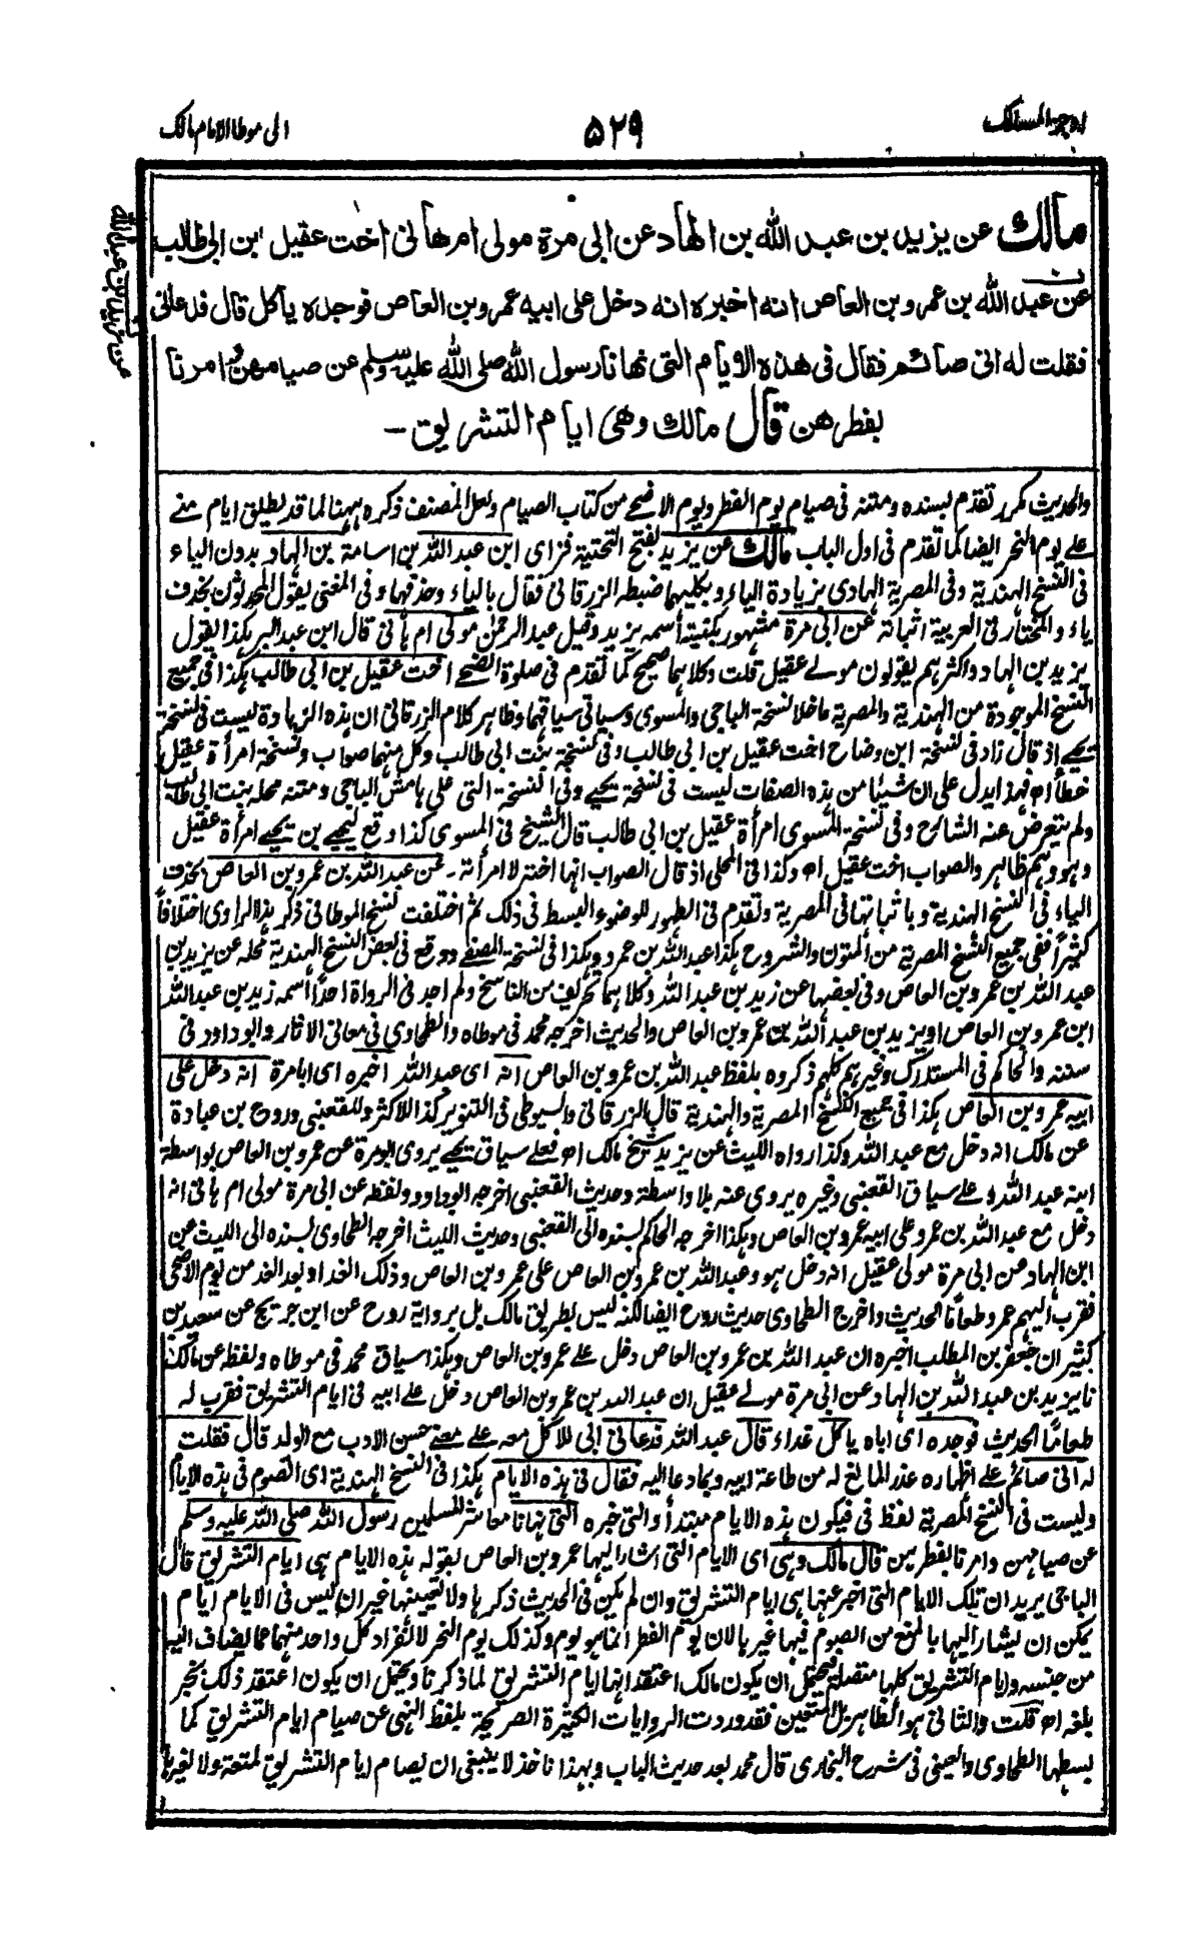 اوجز المسالك
٥٢٩
الى موطا الامام مالك
مالك عن يزيد بن عبد الله بن الهاد عن ابى مرة مولى ام هانئ اخت عقيل بن ابى طالب
عن عبد الله بن عمرو بن العاص انه اخبره انه دخل على ابيه عمرو بن العاص فوجده يأكل قال فدعانى
فقلت له انى صائم فقال فى هذه الايام التى نهانا رسول الله صلى الله عليه وسلم عن صيامهن وامرنا
بفطرهن قال مالك وهى ايام التشريق -
والحديث مكرر تقدم بسنده ومتنه فى صيام يوم الفطر ويوم الاضحى من كتاب الصيام ولعل المصنف ذكره ههنا لما قد يطلق ايام منى
على يوم النحر ايضا كما تقدم فى اول الباب مالك عن يزيد بفتح التحتية فزاى ابن عبد الله بن اسامة بن الهاد بدون الياء
فى النسخ الهندية وفى المصرية الهادى بزيادة الياء وبكليهما ضبطه الزرقانى فقال بالياء وحذفها وفى المغنى يقول المحدثون بحذف
ياء والمختار فى العربية اثباته عن ابى مرة مشهور بكنيته اسمه يزيد وقيل عبد الرحمن مولى ام هانى قال ابن عبد البر هكذا يقول
يزيد بن الهاد واكثرهم يقولون مولى عقيل قلت وكلاهما صحيح كما تقدم فى صلوة الضحى اخت عقيل بن ابى طالب هكذا فى جميع
النسخ الموجودة من الهندية والمصرية ما خلا نسخة الباجى والمسوى وسياتى سياقهما وظاهر كلام الزرقانى ان هذه الزيادة ليست فى نسخة
يحيى اذ قال زاد فى نسخة ابن وضاح اخت عقيل بن ابى طالب وفى نسخة بنت ابى طالب وكل منهما صواب ونسخة امرأة عقيل
خطأ اه فهذا يدل على ان شيئا من هذه الصفات ليست فى نسخة يحيى وفى النسخة التى على هامش الباجى ومتنه محله بنت ابى طالب
ولم يتعرض عنه الشارح وفى نسخة المسوى امرأة عقيل بن ابى طالب قال الشيخ فى المسوى كذا وقع ليحيى بن يحيى امرأة عقيل
وهو وهم ظاهر والصواب اخت عقيل اه وكذا فى المحلى اذ قال الصواب انها اخته لا امرأته - عن عبد الله بن عمرو بن العاص بحذف
الياء فى النسخ الهندية وباثباتها فى المصرية وتقدم فى الطهور للوضوء البسط فى ذلك ثم اختلفت نسخ الموطا فى ذكر هذا الراوى اختلافا
كثيرا ففى جميع النسخ المصرية من المتون والشروح هكذا عبد الله بن عمرو وهكذا فى نسخة المصفى ووقع فى بعض النسخ الهندية محله عن يزيد بن
عبد الله بن عمرو بن العاص وفى بعضها عن زيد بن عبد الله وكلاهما تحريف من الناسخ ولم اجد فى الرواة احدا اسمه زيد بن عبد الله
ابن عمرو بن العاص او يزيد بن عبد الله بن عمرو بن العاص والحديث اخرجه محمد فى موطاه والطحاوى فى معانى الاثار وابوداود فى
سننه والحاكم فى المستدرك وغيرهم كلهم ذكروه بلفظ عبد الله بن عمرو بن العاص انه اى عبد الله اخبره اى ابا مرة انه دخل على
ابيه عمرو بن العاص هكذا فى جميع النسخ المصرية والهندية قال الزرقانى والسيوطى فى التنوير كذا للاكثر وللقعنبى وروح بن عبادة
عن مالك انه دخل مع عبد الله وكذا رواه الليث عن يزيد شيخ مالك اه فعلى سياق يحيى يروى ابو مرة عن عمرو بن العاص بواسطة
ابنه عبد الله وعلى سياق القعنبى وغيره يروى عنه بلا واسطة وحديث القعنبى اخرجه ابوداود ولفظه عن ابى مرة مولى ام هانى انه
دخل مع عبد الله بن عمرو على ابيه عمرو بن العاص وهكذا اخرجه الحاكم بسنده الى القعنبى وحديث الليث اخرجه الطحاوى بسنده الى الليث عن
ابن الهاد عن ابى مرة مولى عقيل انه دخل هو وعبد الله بن عمرو بن العاص على عمرو بن العاص وذلك الغد او بعد الغد من يوم الاضحى
فقرب اليهم عمرو طعاما الحديث واخرج الطحاوى حديث روح ايضا لكنه ليس بطريق مالك بل برواية روح عن ابن جريج عن سعيد بن
كثير ان جعفر بن المطلب اخبره ان عبد الله بن عمرو بن العاص دخل على عمرو بن العاص وهكذا سياق محمد فى موطاه ولفظه عن مالك
نا يزيد بن عبد الله بن الهاد عن ابى مرة مولى عقيل ان عبد الله بن عمرو بن العاص دخل على ابيه فى ايام التشريق فقرب له
طعاما الحديث فوجده اى اباه ياكل غداء قال عبد الله فدعانى ابى للاكل معه على معنى حسن الادب مع الولد قال فقلت
له انى صائم على اظهاره عذر المانع له من طاعة ابيه وبما دعا اليه فقال فى هذه الايام هكذا فى النسخ الهندية اى الصوم فى هذه الايام
وليست فى النسخ المصرية لفظ فى فيكون هذه الايام مبتدأ والتى خبره التى نهانا معاشر المسلمين رسول الله صلى الله عليه وسلم
عن صيامهن وامرنا بفطرهن قال مالك وهى اى الايام التى اشار اليها عمرو بن العاص بقوله هذه الايام هى ايام التشريق قال
الباجى يريد ان تلك الايام التى اخبر عنها هى ايام التشريق وان لم يكن فى الحديث ذكرها ولا تعيينها غير ان ليس فى الايام ايام
يمكن ان يشار اليها بالمنع من الصوم فيها غيرها لان يوم الفطر انما هو يوم وكذلك يوم النحر لانفراد كل واحد منهما مما يضاف اليه
من جنسه وايام التشريق كلها متصلة فيحتمل ان يكون مالك اعتقد انها ايام التشريق لما ذكرنا ويحتمل ان يكون اعتقد ذلك بخبر
بلغه اه قلت والثانى هو الظاهر بل المتعين فقد وردت الروايات الكثيرة الصريحة بلفظ النهى عن صيام ايام التشريق كما
بسطها الطحاوى والعينى فى شرح البخارى قال محمد بعد حديث الباب وبهذا ناخذ لا ينبغى ان يصام ايام التشريق لمتعة ولا لغيرها